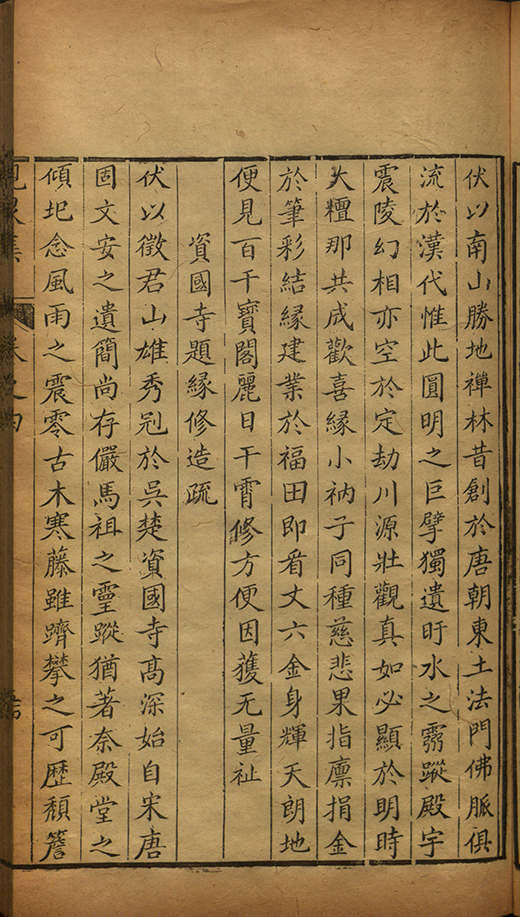 伏以南山勝地禪林昔創於唐朝東土法門佛脈俱
流於漢代惟此圓明之巨擘獨遺旴水之靈蹤殿宇
震陵幻相亦空於定劫川源壯觀真如必顯於明時
大檀那共成歡喜緣小衲子同種慈悲果指廪捐金
於筆彩結緣建業於福田即看丈六金身輝天朗地
便見百千寶閣麗日干霄修方便因獲无量祉
資國寺題緣修造疏
伏以徵君山雄秀冠於吳楚資國寺高深始自宋唐
固文安之遺簡尚存儼馬祖之靈蹤猶著奈殿堂之
傾圮念風雨之震零古木寒藤雖躋攀之可歷頹簷